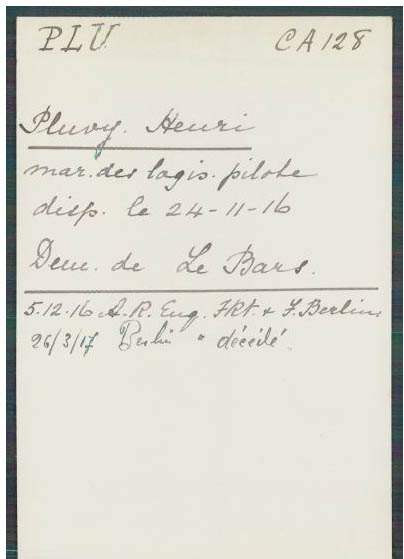 PLU CA 128
Pluvy. Henri
mar. des logis. pilote
disp. le 24-11-16
Dem. de Le Bars.
5.12.16 A. R. Enq. Fkt. + F. Berlin
26/3/17 Berlin " décédé.